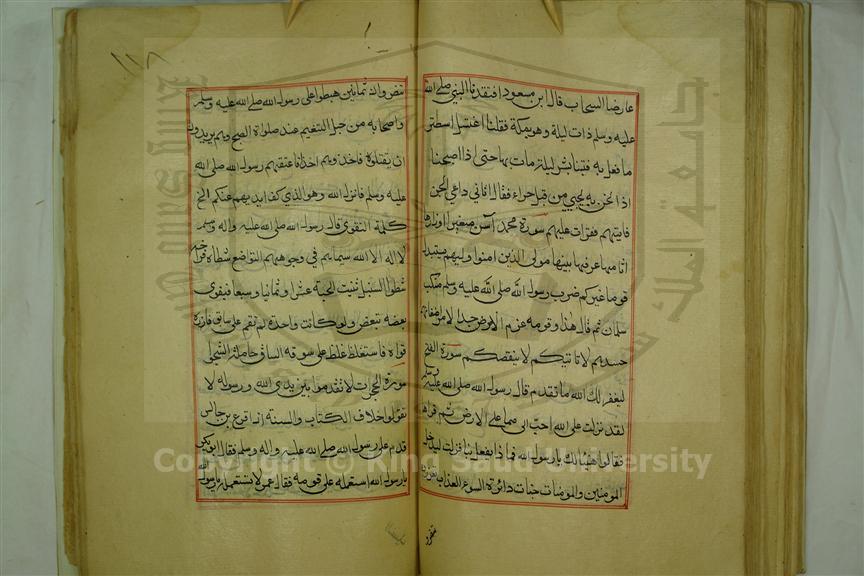 عارضا السحاب قال ابن مسعود افتقدنا النبي صلى الله
عليه وسلم ذات ليلة وهو بمكة فقلنا اغتيل استطير
ما فعل به فبتنا بشر ليلة بات بها حتى اذا اصبحنا
اذا نحن به يجيي من قبل حراء فقال اتاني داعي الجن
فاتيتهم فقرات عليهم سورة محمد آسن متغير اوزارها
اثامها عرفها بينها مولى الذين امنوا وليهم يستبدل
قوما غيركم ضرب رسول الله صلى الله عليه وسلم منكب
سلمان ثم قال هذا وقومه عزم الامر جد الامر اضغانهم
حسدهم لا تاتيكم لا ينقصكم سورة الفتح
ليغفر لك الله ما تقدم قال رسول الله صلى الله عليه وسلم
لقد نزلت على الله احب الى مما على الارض ثم قراها
فقالوا هنيئا لك يا رسول الله فما ذا يفعل بنا فنزلت ليدخل
المومنين والمومنات جنات دائرة السوء العذاب
تنصروه
١١٨
ثمانين هبطوا على رسول الله صلى الله عليه وسلم
واصحابه من جبل التنعيم عند صلواة الصبح وهم يريدون
ان يقتلوه فاخذوهم اخذا فاعتقهم رسول الله صلى الله
عليه وسلم فانزل الله وهو الذي كف ايديهم عنكم الخ
كلمة التقوى قال رسول الله صلى الله عليه واله وسلم
لا اله الا الله سيماهم في وجوههم التواضع شطاه فراخه
شطوا السنبل تنبت الحبة عشرا وثمانيا وسبعا فيقوى
بعضه ببعض ولو كانت واحدة لم تقم على ساق فازره
قواه فاستغلظ غلظ على سوقه الساق حاملة الشجر
سورة الحجرات لا تقدموا بين يدى الله ورسوله لا
تقولوا خلاف الكتاب والسنة ان اقرع بن حابس
قدم على رسول الله صلى الله عليه واله وسلم فقال ابو بكر
يا رسول الله استعمله على قومه فقال عمر لا تستعمله يا رسول الله
Copyright © King Saud University
جامعة الملك